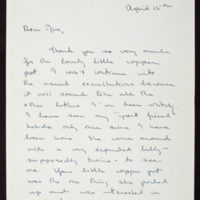 April 15th
Dear Jim,
Thank you so very much
for the lovely little copper
pot. I won't continue into
the usual exultations because
it will sound like all the
other letters I've been writing.
I have seen my "past friend"
twice only once since I have
been home. She came around
with a very expanded belly —
supposedly twins — to see
me. Your little copper pot
was the one thing she picked
up and was interested in